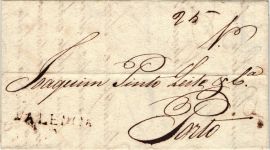 25
Joaquim Pinto Leite & Cª
Porto
VALENÇA